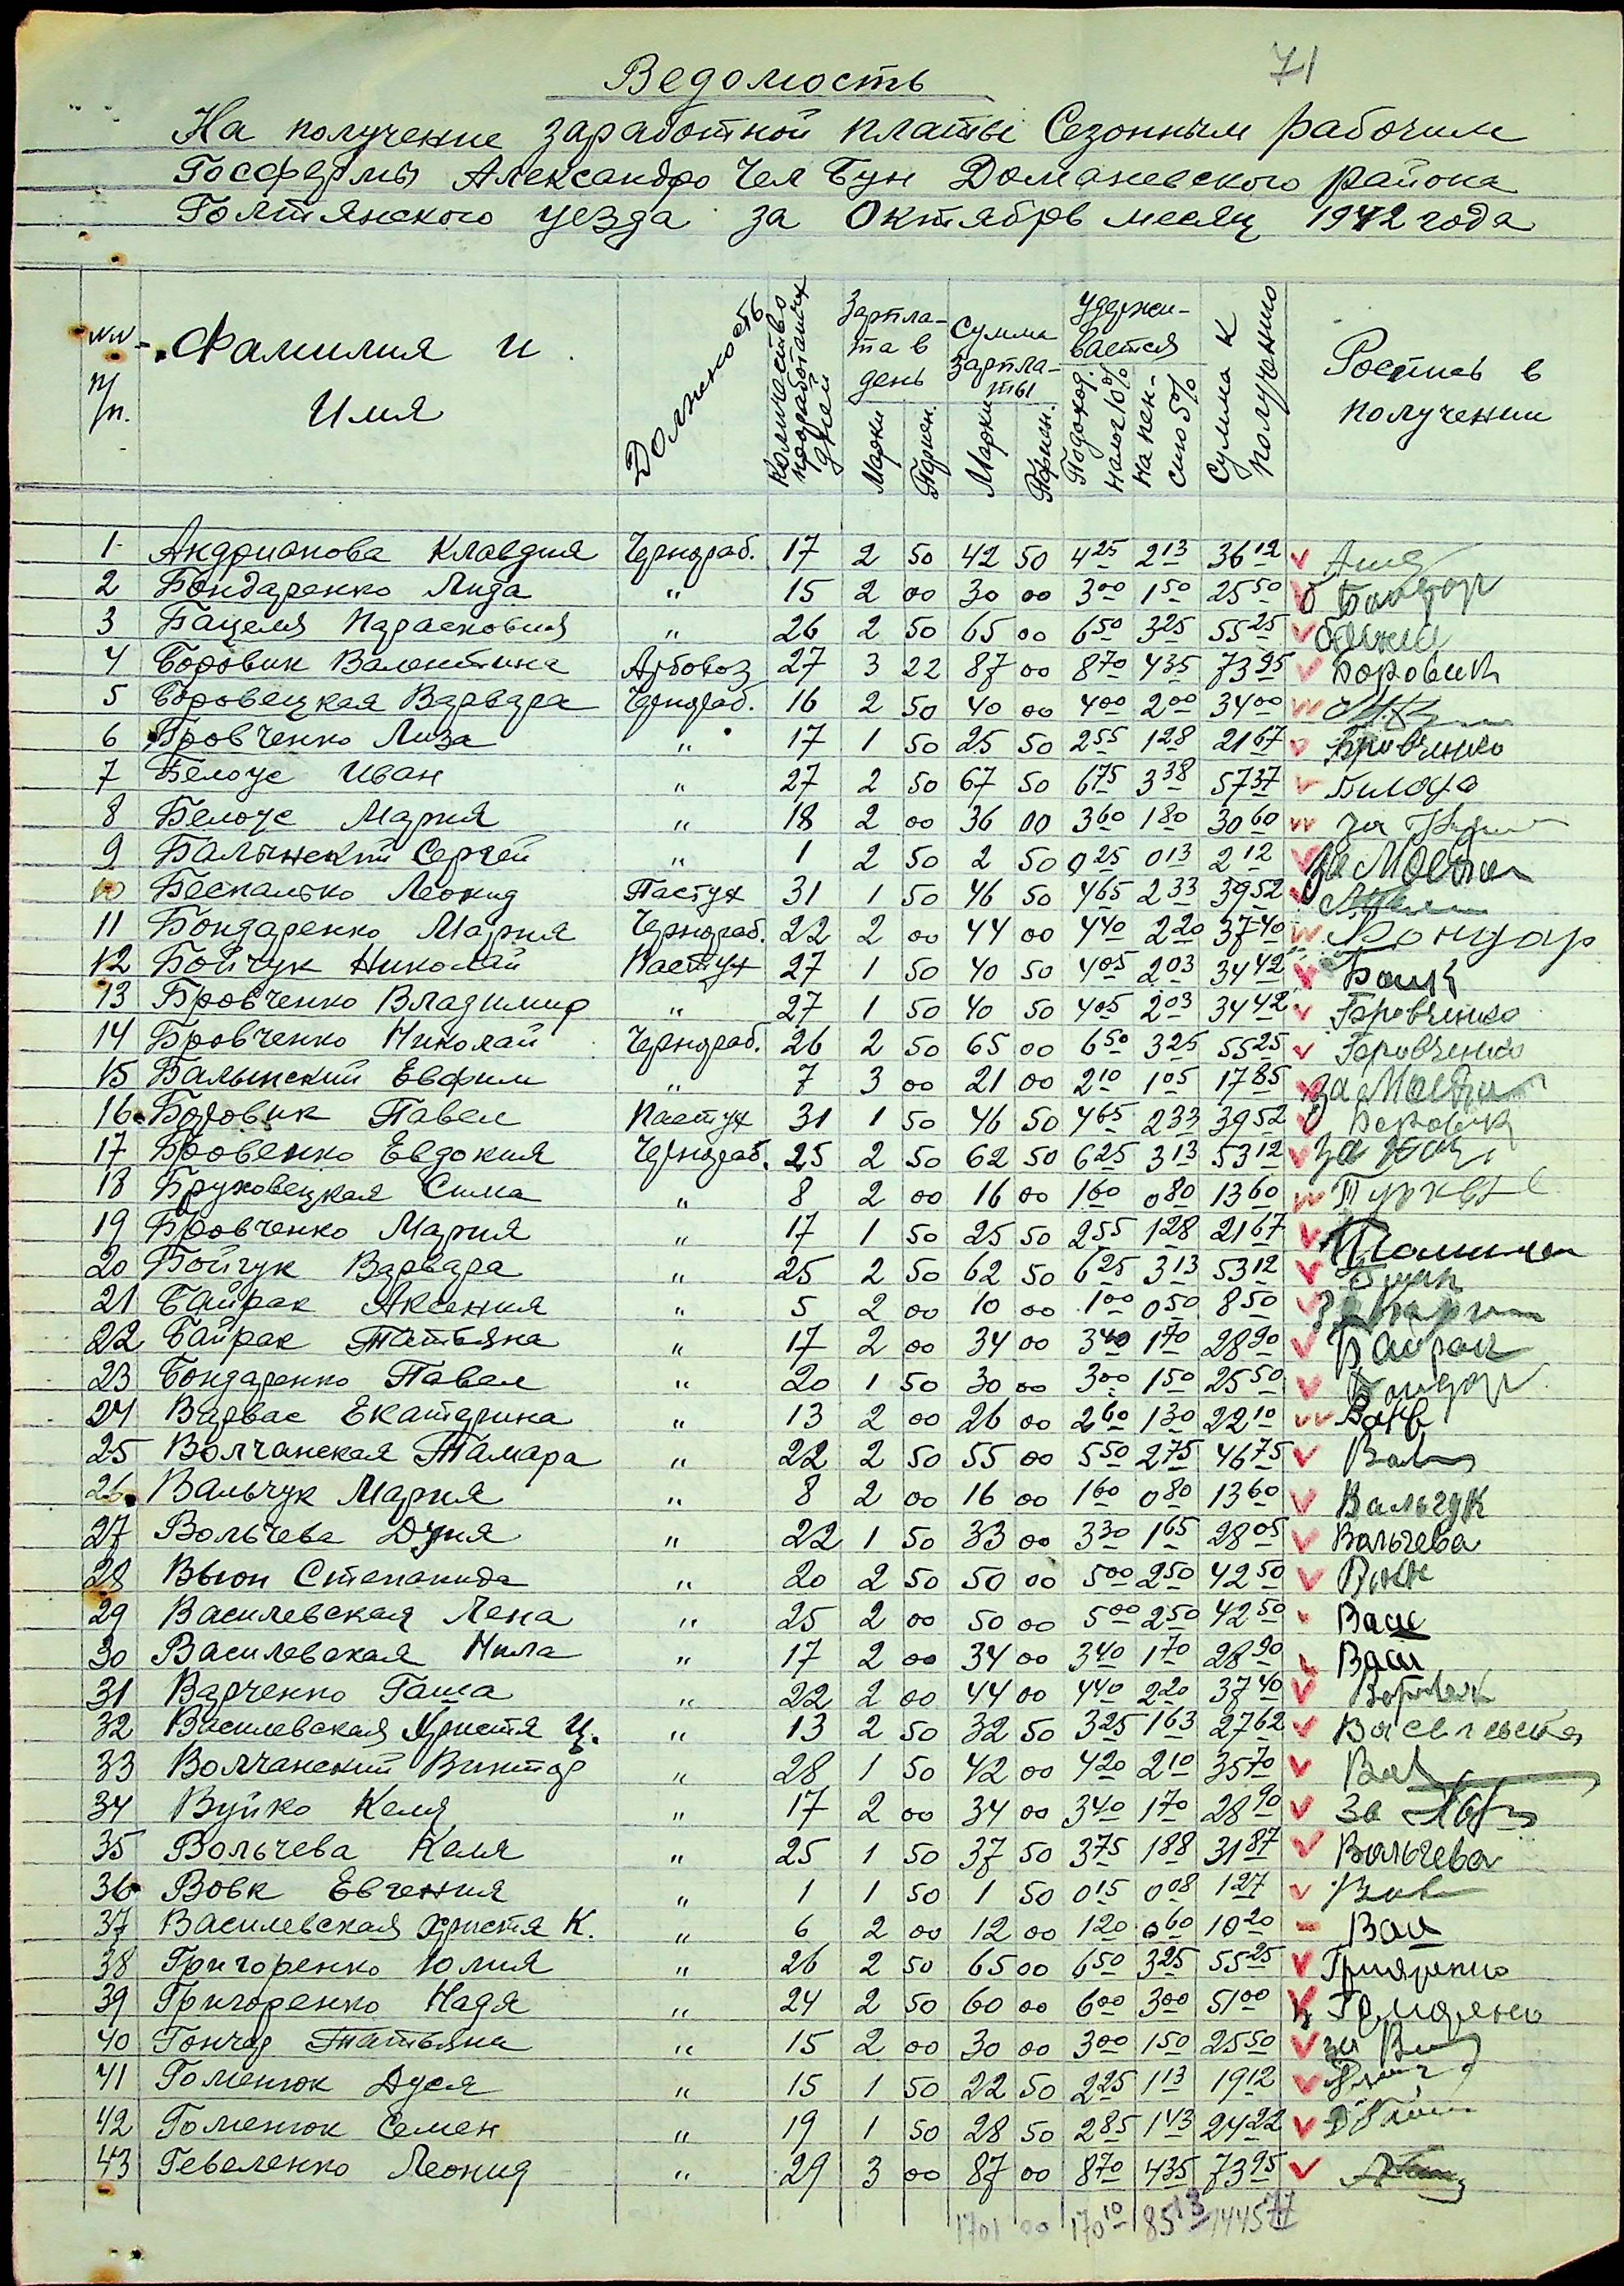 71
Ведомость
На получение заработной платы Сезонным рабочим
Госфермы Александро Чел Бун Доманевского района
Голтянского уезда за Октябрь месяц 1942 года
№№ п/п. Фамилия и Имя Должность Количество проработаных дней Зарпла-та в день Марки Пфенн. Сумма зарпла-ты Марки Пфенн. Удержи-вается Подоход. налог 10% на пен-сию 5% Сумма к получению Роспись в получении
1 Андрианова Клавдия Чернораб. 17 2 50 42 50 4 25 2 13 36 12
2 Бондаренко Лида " 15 2 00 30 00 3 00 1 50 25 50 Бондар
3 Бацеля Парасковия " 26 2 50 65 00 6 50 3 25 55 25
4 Боровик Валентина Арбовоз 27 3 22 87 00 8 70 4 35 73 95 Боровик
5 Боровецкая Варвара Чернораб. 16 2 50 40 00 4 00 2 00 34 00
6 Бровченко Лиза " 17 1 50 25 50 2 55 1 28 21 67 Бровченко
7 Белоус Иван " 27 2 50 67 50 6 75 3 38 57 37
8 Белоус Мария " 18 2 00 36 00 3 60 1 80 30 60 за
9 Балынский Сергей " 1 2 50 2 50 0 25 0 13 2 12 за
10 Беспалько Леонид Пастух 31 1 50 46 50 4 65 2 33 39 52
11 Бондаренко Мария Чернораб. 22 2 00 44 00 4 40 2 20 37 40 Бондар
12 Бойчук Николай Пастух 27 1 50 40 50 4 05 2 03 34 42
13 Бровченко Владимир " 27 1 50 40 50 4 05 2 03 34 42 Бровченко
14 Бровченко Николай Чернораб. 26 2 50 65 00 6 50 3 25 55 25 Бровченко
15 Балынский Евфим " 7 3 00 21 00 2 10 1 05 17 85 за
16 Боровик Павел Пастух 31 1 50 46 50 4 65 2 33 39 52 Боровик
17 Бровенко Евдокия Чернораб. 25 2 50 62 50 6 25 3 13 53 12 за
18 Бруховецкая Сима " 8 2 00 16 00 1 60 0 80 13 60
19 Бровченко Мария " 17 1 50 25 50 2 55 1 28 21 67
20 Бойчук Варвара " 25 2 50 62 50 6 25 3 13 53 12
21 Байрак Аксения " 5 2 00 10 00 1 00 0 50 8 50
22 Байрак Татьяна " 17 2 00 34 00 3 40 1 70 28 90 Байрак
23 Бондаренко Павел " 20 1 50 30 00 3 00 1 50 25 50 Бондар
24 Варвас Екатерина " 13 2 00 26 00 2 60 1 30 22 10
25 Волчанская Тамара " 22 2 50 55 00 5 50 2 75 46 75
26 Вальчук Мария " 8 2 00 16 00 1 60 0 80 13 60 Вальчук
27 Вольчева Дуня " 22 1 50 33 00 3 30 1 65 28 05 Вольчева
28 Вьюн Степанида " 20 2 50 50 00 5 00 2 50 42 50
29 Василевская Лена " 25 2 00 50 00 5 00 2 50 42 50 Вас
30 Василевская Нила " 17 2 00 34 00 3 40 1 70 28 90 Вас
31 Варченко Гаша " 22 2 00 44 00 4 40 2 20 37 40
32 Василевская Христя Ц. " 13 2 50 32 50 3 25 1 63 27 62
33 Волчанский Виктор " 28 1 50 42 00 4 20 2 10 35 70
34 Вуйко Келя " 17 2 00 34 00 3 40 1 70 28 90 за
35 Вольчева Келя " 25 1 50 37 50 3 75 1 88 31 87 Вольчева
36 Вовк Евгения " 1 1 50 1 50 0 15 0 08 1 27
37 Василевская Христя К. " 6 2 00 12 00 1 20 0 60 10 20 Вас
38 Григоренко Юлия " 26 2 50 65 00 6 50 3 25 55 25
39 Григоренко Надя " 24 2 50 60 00 6 00 3 00 51 00
40 Гончар Татьяна " 15 2 00 30 00 3 00 1 50 25 50 за
41 Гоменюк Дуся " 15 1 50 22 50 2 25 1 13 19 12
42 Гоменюк Семен " 19 1 50 28 50 2 85 1 43 24 22
43 Гевеленко Леонид " 29 3 00 87 00 8 70 4 35 73 95
1701 00 170 10 85 13 1445 77